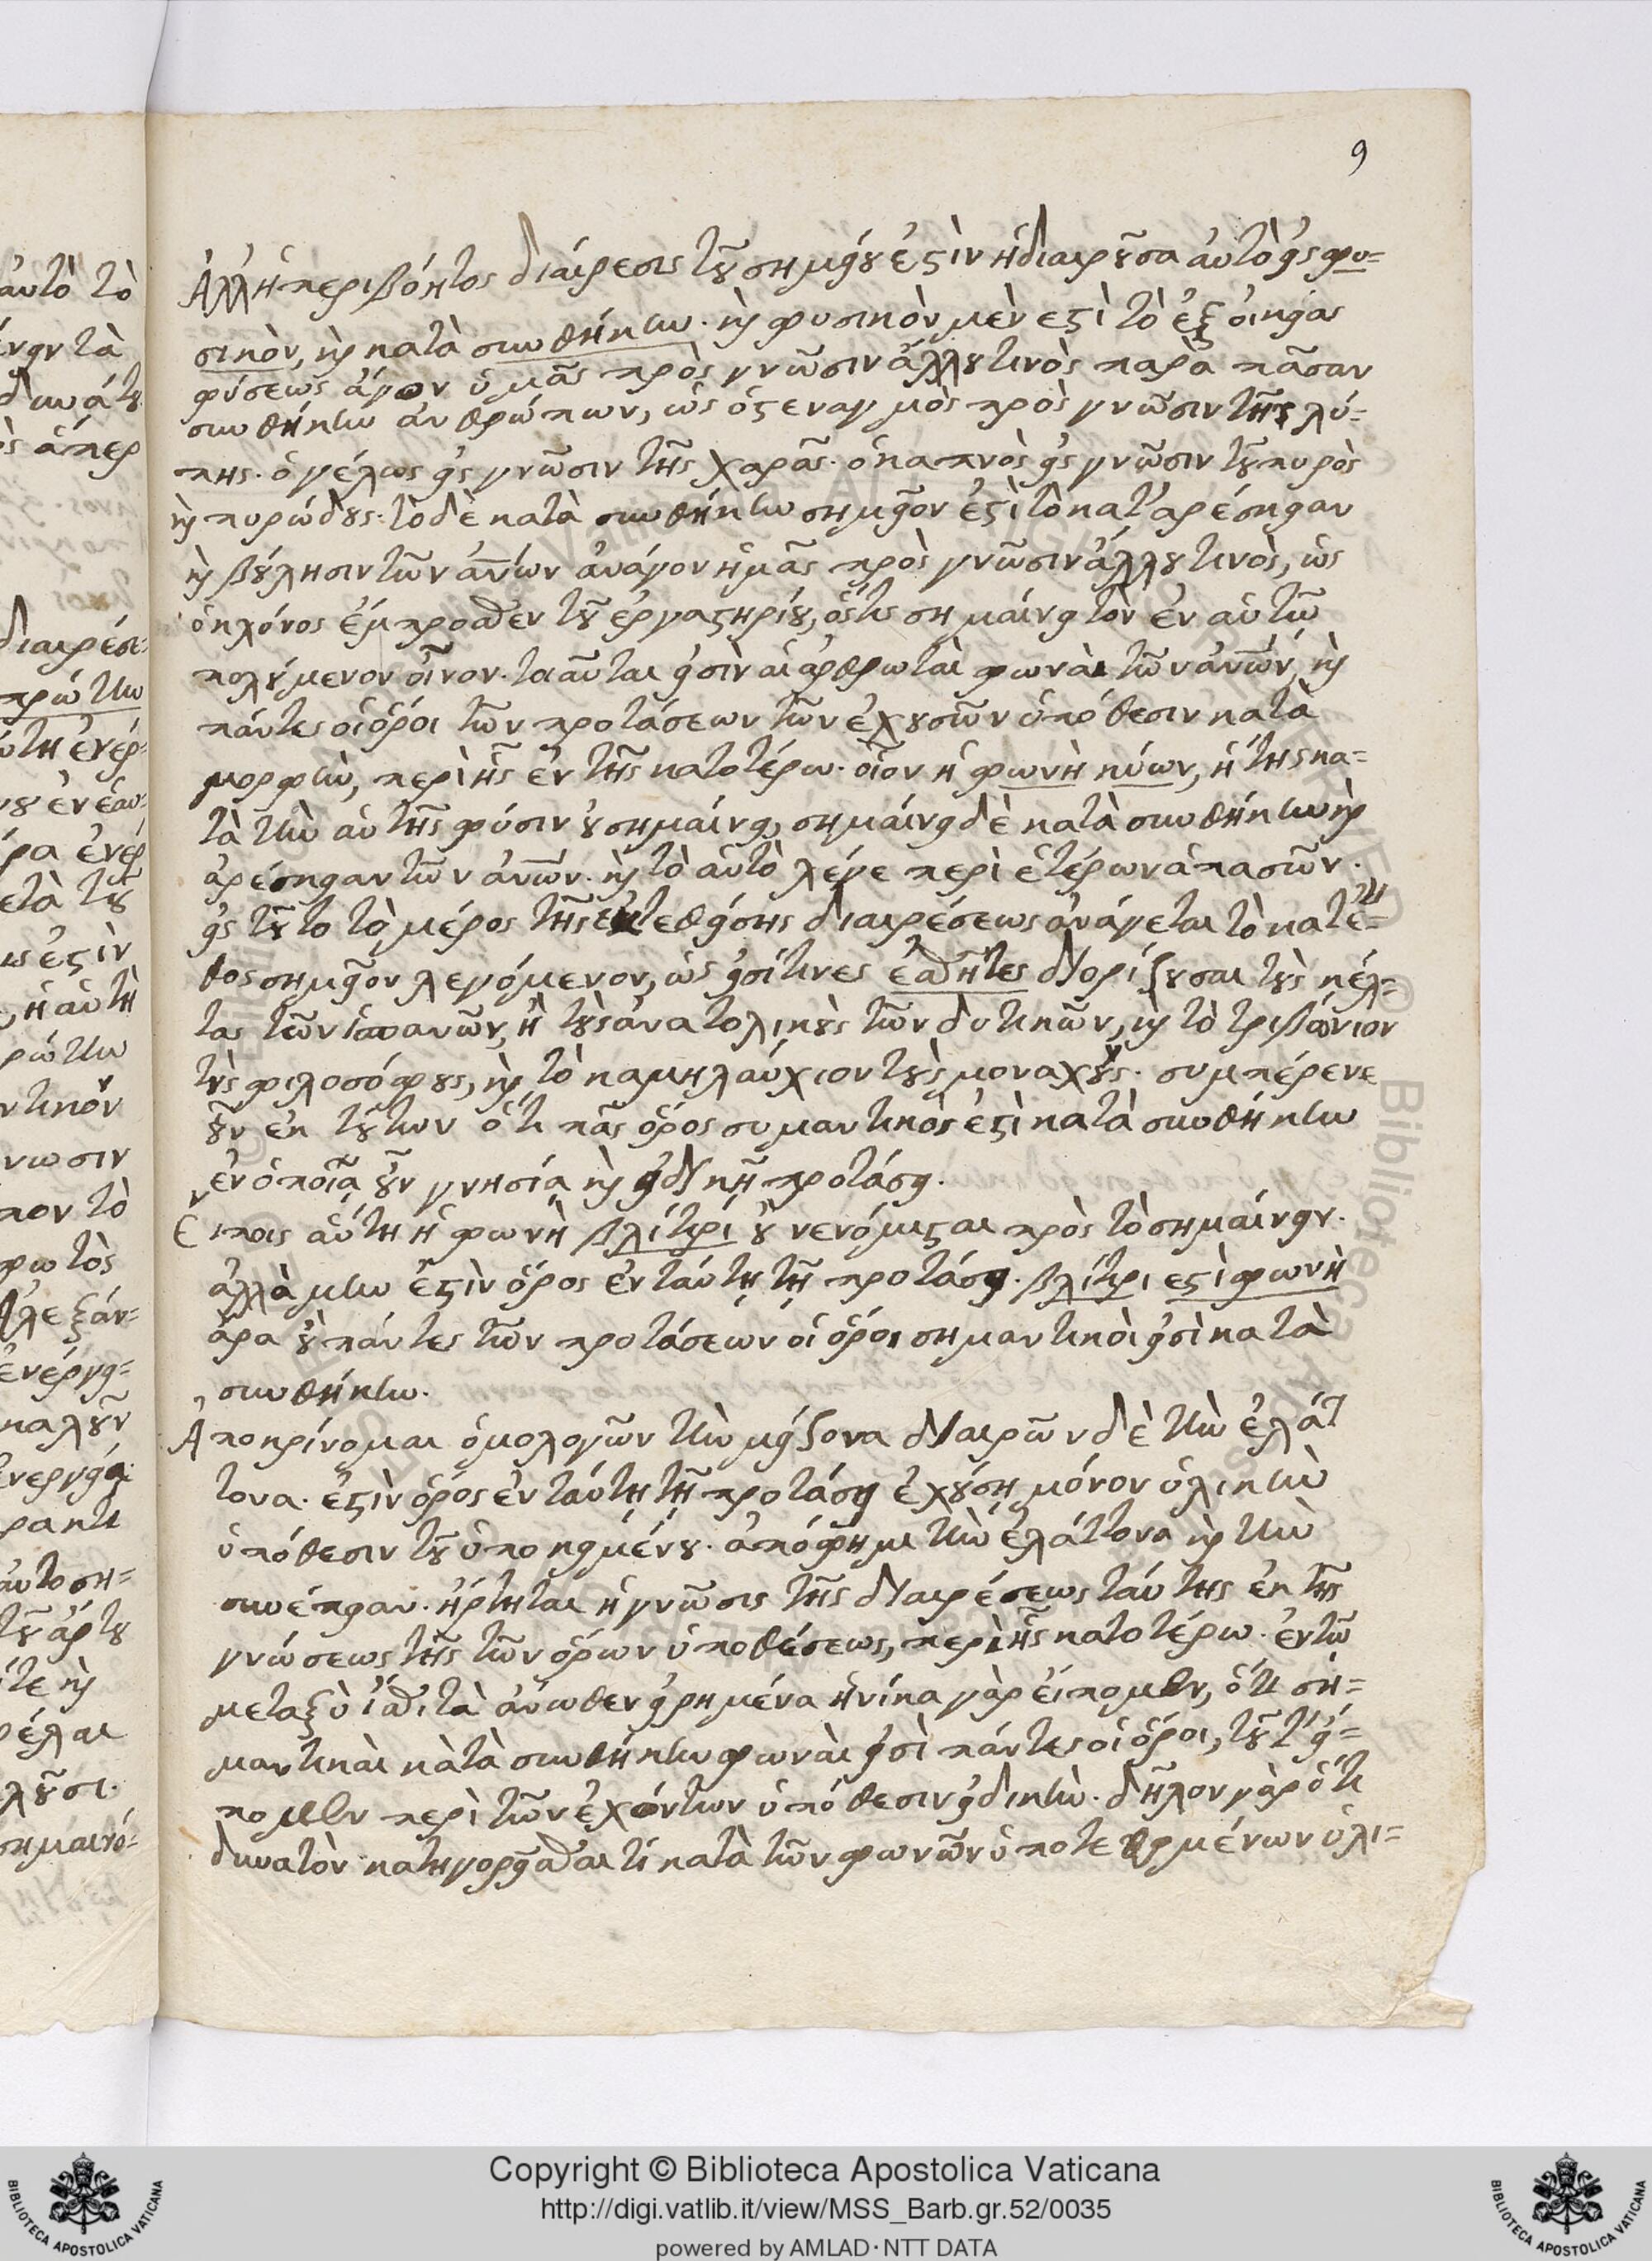 9
Ἀλλ' ἡ περιβόητος διαίρεσις τοῦ σημείου ἐστὶν ἡ διαιροῦσα αὐτὸ εἰς φυ=
σικὸν, καὶ κατὰ συνθήκην. καὶ φυσικὸν μὲν εστὶ τὸ ἐξ οἰκείας
φύσεως ἄγον ὑμᾶς πρὸς γνῶσιν ἄλλου τινὸς παρὰ πᾶσαν
συνθήκην ἀνθρώπων, ὡς ὁ στεναγμὸς πρὸς γνῶσιν τῆς λύ=
πης. ὁ γέλως εἰς γνῶσιν τῆς χαρᾶς. ὁ καπνὸς εἰς γνῶσιν τοῦ πυρὸς
καὶ πυρώδους. τὸ δὲ κατὰ συνθήκην σημεῖον ἐστὶ τὸ κατ' αρέσκειαν
καὶ βούλησιν τῶν ἀνων ἀνάγον ἡμᾶς πρὸς γνῶσιν ἄλλου τινὸς, ὡς
ὁ κλόνος ἔμπροσθεν τοῦ ἐργαστηρίου, ὅστις σημαίνει τὸν ἐν αὐτῶ
πολούμενον οἶνον. τοιαῦται εἰσὶν αἱ ἀρθρωταὶ φωναὶ τῶν ἀνων, καὶ
πάντες οἱ ὅροι τῶν προτάσεων τῶν ἐχουσῶν ὑπόθεσιν κατὰ
μορφὴν, περὶ ἧς ἐν τῆς κατοτέρω. οἷον ἡ φωνὴ κύων, ἥτις κα=
τὰ τὴν αὑτῆς φύσιν οὐ σημαίνει, σημαίνει δὲ κατὰ συνθήκην καὶ
ἀρέσκειαν τῶν ἀνων. καὶ τὸ αὐτὸ λέγε περὶ ἑτέρων ἁπασῶν.
εἰς τοῦτο τὸ μέρος τῆς ἐκτεθείσης διαιρέσεως ἀνάγεται τὸ κατ' ἔ=
θος σημεῖον λεγόμενον, ὡς εἰσί τινες ἐσθῆτες διορίζουσαι τοὺς κέλ=
τας τῶν ἱσπανῶν, ἢ τοὺς ἀνατολικοὺς τῶν δυτικῶν, καὶ τὸ τριβώνιον
τοὺς φιλοσόφους, καὶ τὸ καμηλαύχιον τοὺς μοναχούς. συμπέρενε
οὖν ἐκ τούτων ὅτι πᾶς ὅρος συμαντικὸς ἐστὶ κατὰ συνθήκην
ἐν ὁποία οὖν γνησία καὶ εἰδικῆ προτάσει.
Εἴποις αὕτη ἡ φωνὴ βλίτιρί οὐ νενόμισται πρὸς τὸ σημαίνειν.
ἀλλὰ μὴν ἔστιν ὅρος ἐν ταύτῃ τῇ προτάσει. βλίτιρι εστὶ φωνὴ
ἄρα οὐ πάντες τῶν προτάσεων οἱ ὅροι σημαντικοὶ εἰσὶ κατὰ
συνθήκην.
Ἀποκρίνομαι ὁμολογῶν τὴν μείζονα διαιρῶν δὲ τὴν ἐλάτ
τονα. ἐστὶν ὅρος ἐν ταύτῃ τῇ προτάσει ἐχούσῃ μόνον ὑλικὴν
ὑπόθεσιν τοῦ ὑποκειμένου. ἀπόφημι τὴν ἐλάττονα καὶ τὴν
συνέπειαν. ἤρτηται ἡ γνῶσις τῆς διαιρέσεως ταύτης ἐκ τῆς
γνώσεως τῆς τῶν ὅρων ὑποθέσεως, περὶ ἧς κατοτέρω. ἐν τῶ
μεταξὺ ἴσθι τὰ ἄνωθεν εἰρημένα ἡνίκα γὰρ εἴπομεν, ὅτι ση=
μαντικαὶ κατὰ συνθήκην φωναὶ εἰσὶ πάντες οἱ ὅροι, τοῦτ' εἴ=
πομεν περὶ τῶν ἐχόντων ὑπόθεσιν εἰδικὴν. δῆλον γὰρ ὅτι
δυνατὸν κατηγορεῖσθαι τί κατὰ τῶν φωνῶν ὑποτεθειμένων ὑλι=
Copyright © Biblioteca Apostolica Vaticana
http://digi.vatlib.it/view/MSS_Barb.gr.52/0035
powered by AMLAD·NTT DATA